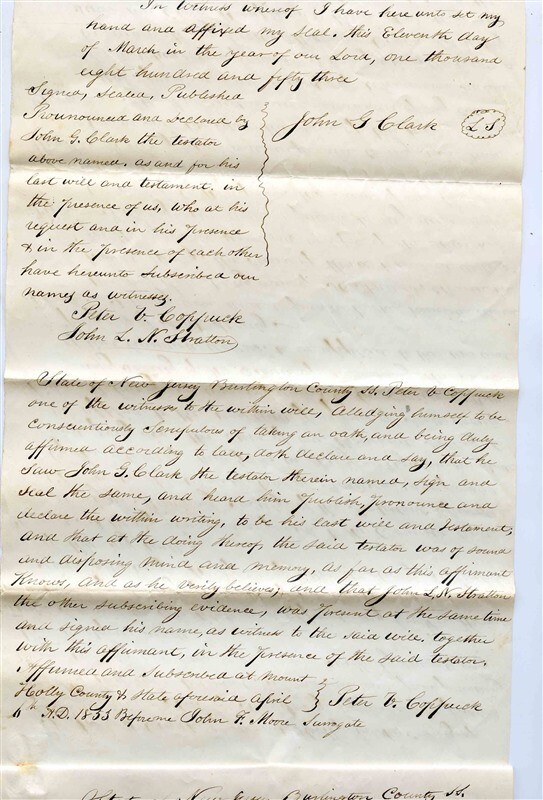 In Witness whereof I have here unto set my
hand and affixed my seal, this Eleventh day
of March in the year of our Lord, one thousand
eight hundred and fifty three
Signed, sealed, Published
Pronounced and declared by
John G. Clark the testator
above named, as and for his
last will and testament, in
the presence of us, who at his
request and in his presence
& in the presence of each other
have hereunto subscribed our
names as witnesses.
John G Clark L S
Peter V. Coppuck
John L. N. Stratton
State of New Jersey Burlington County SS. Peter V Coppuck
one of the witnesses to the within will, alledging himself to be
conscientiously scrupulous of taking an oath, and being duly
affirmed according to law, doth declare and say, that he
saw John G. Clark the testator therein named, sign and
seal the same, and heard him publish, pronounce and
declare the within writing, to be his last will and testament;
and that at the doing thereof, the said testator was of sound
and disposing mind and memory, as far as this affirmant
knows, and as he verily believes; and that John L. N. Stratton
the other subscribing evidence, was present at the same time
and signed his name, as witness to the said will, together
with this affirmant, in the presence of the said testator.
Affirmed and subscribed at Mount
Holly County & State aforesaid April
6th A.D. 1853 Before me John F. Moore Surrogate
Peter V. Coppuck
State of New Jersey Burlington County SS.